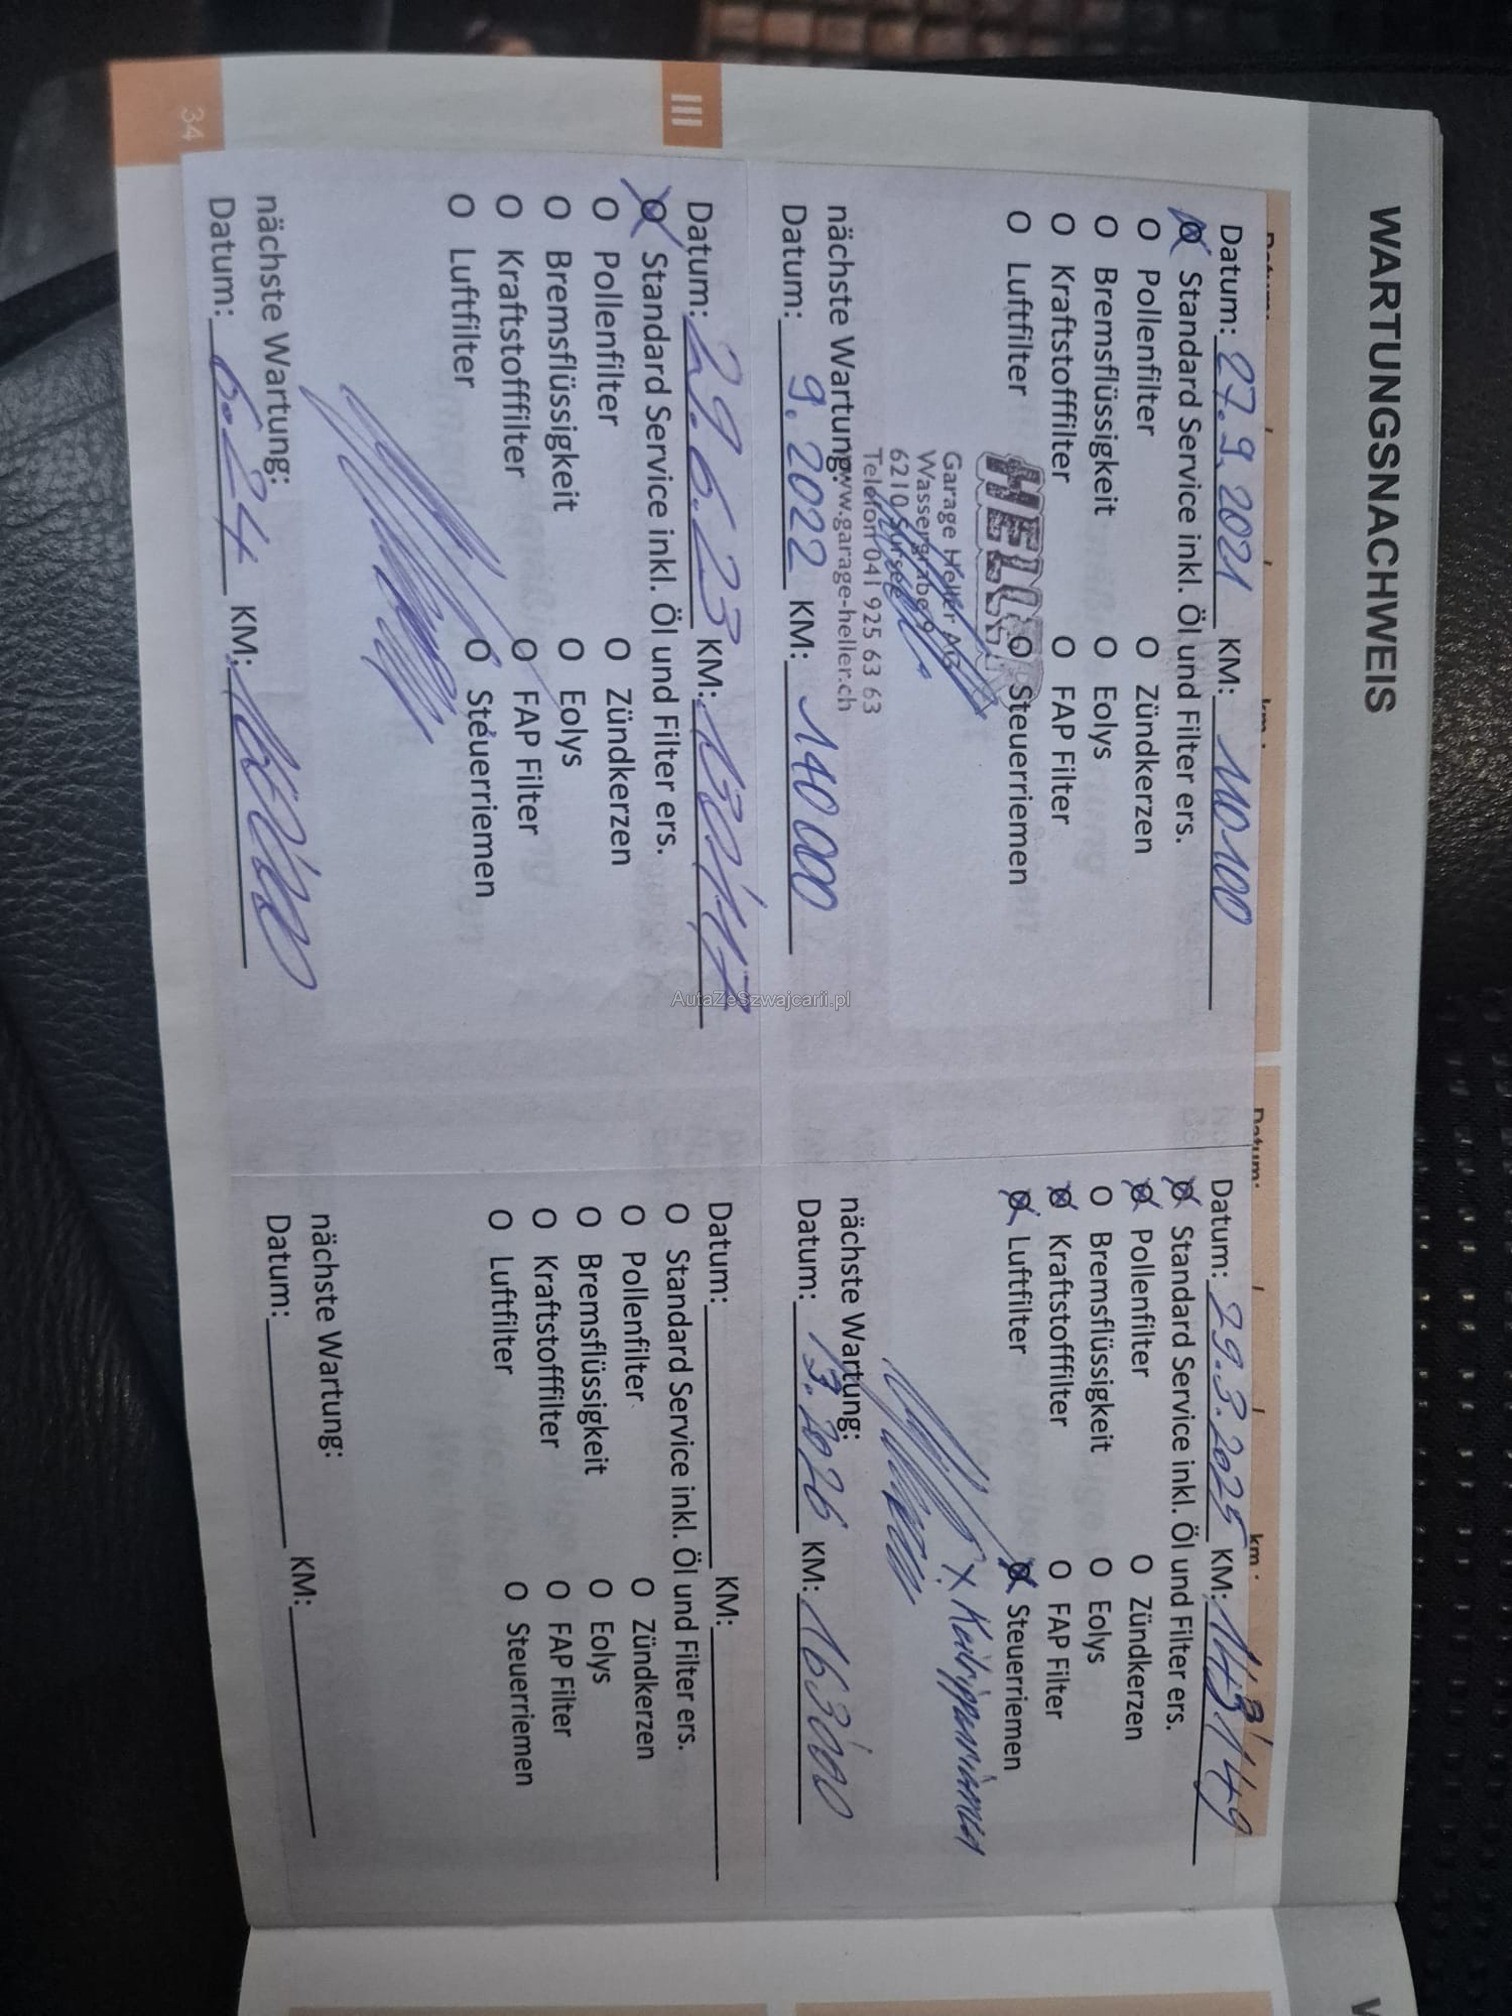 WARTUNGSNACHWEIS
Datum: 27.9.2021 KM: 110100
Standard Service inkl. Öl und Filter ers.
O Pollenfilter O Zündkerzen
O Bremsflüssigkeit O Eolys
O Kraftstofffilter O FAP Filter
O Luftfilter O Steuerriemen
HELLER
Garage Heller AG
Wassergrabe 9
6210 Sursee
Telefon 041 925 63 63
www.garage-heller.ch
nächste Wartung:
Datum: 9.2022 KM: 140000
Datum: 29.6.23 KM:
Standard Service inkl. Öl und Filter ers.
O Pollenfilter O Zündkerzen
O Bremsflüssigkeit O Eolys
O Kraftstofffilter O FAP Filter
O Luftfilter O Steuerriemen
nächste Wartung:
Datum: 6.24 KM:
III
34
Datum: km:
Datum: 29.3.2025 KM: 143'149
Standard Service inkl. Öl und Filter ers.
Pollenfilter O Zündkerzen
O Bremsflüssigkeit O Eolys
Kraftstofffilter O FAP Filter
Luftfilter Steuerriemen
x Keilrippenriemen
nächste Wartung:
Datum: 13.2026 KM: 163'000
Datum: KM:
O Standard Service inkl. Öl und Filter ers.
O Pollenfilter O Zündkerzen
O Bremsflüssigkeit O Eolys
O Kraftstofffilter O FAP Filter
O Luftfilter O Steuerriemen
nächste Wartung:
Datum: KM:
AutaZeSzwajcarii.pl